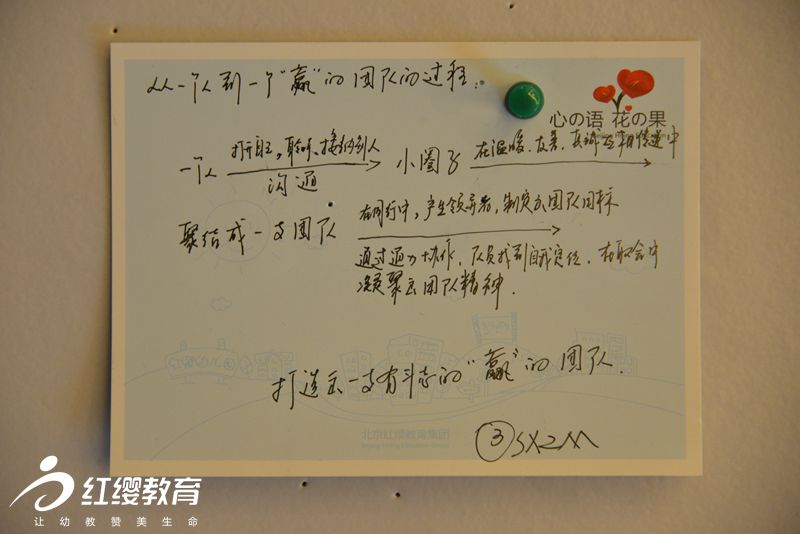 从一个人到一个“赢”的团队的过程：
心の语 花の果
一个人 打开自己，聆听、接纳别人 小圈子 在温暖、友善、真诚 传递中
沟通
聚结成一支团队 在同行中，产生领导者，制定出团队目标
通过通力协作，队员找到自我定位，在取舍中
凝聚出团队精神．
打造出一支有斗志的“赢”的团队．
北京红缨教育集团
③
红缨教育
让幼教赞美生命